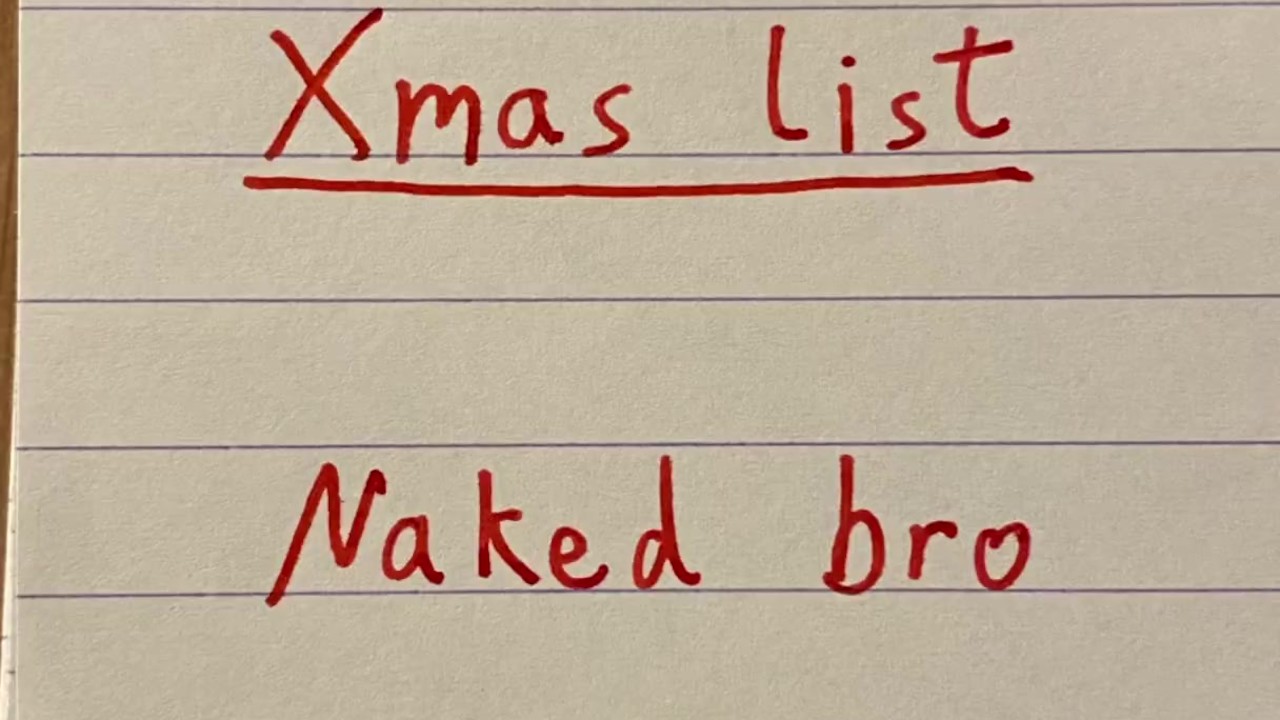 Xmas list
Naked bro